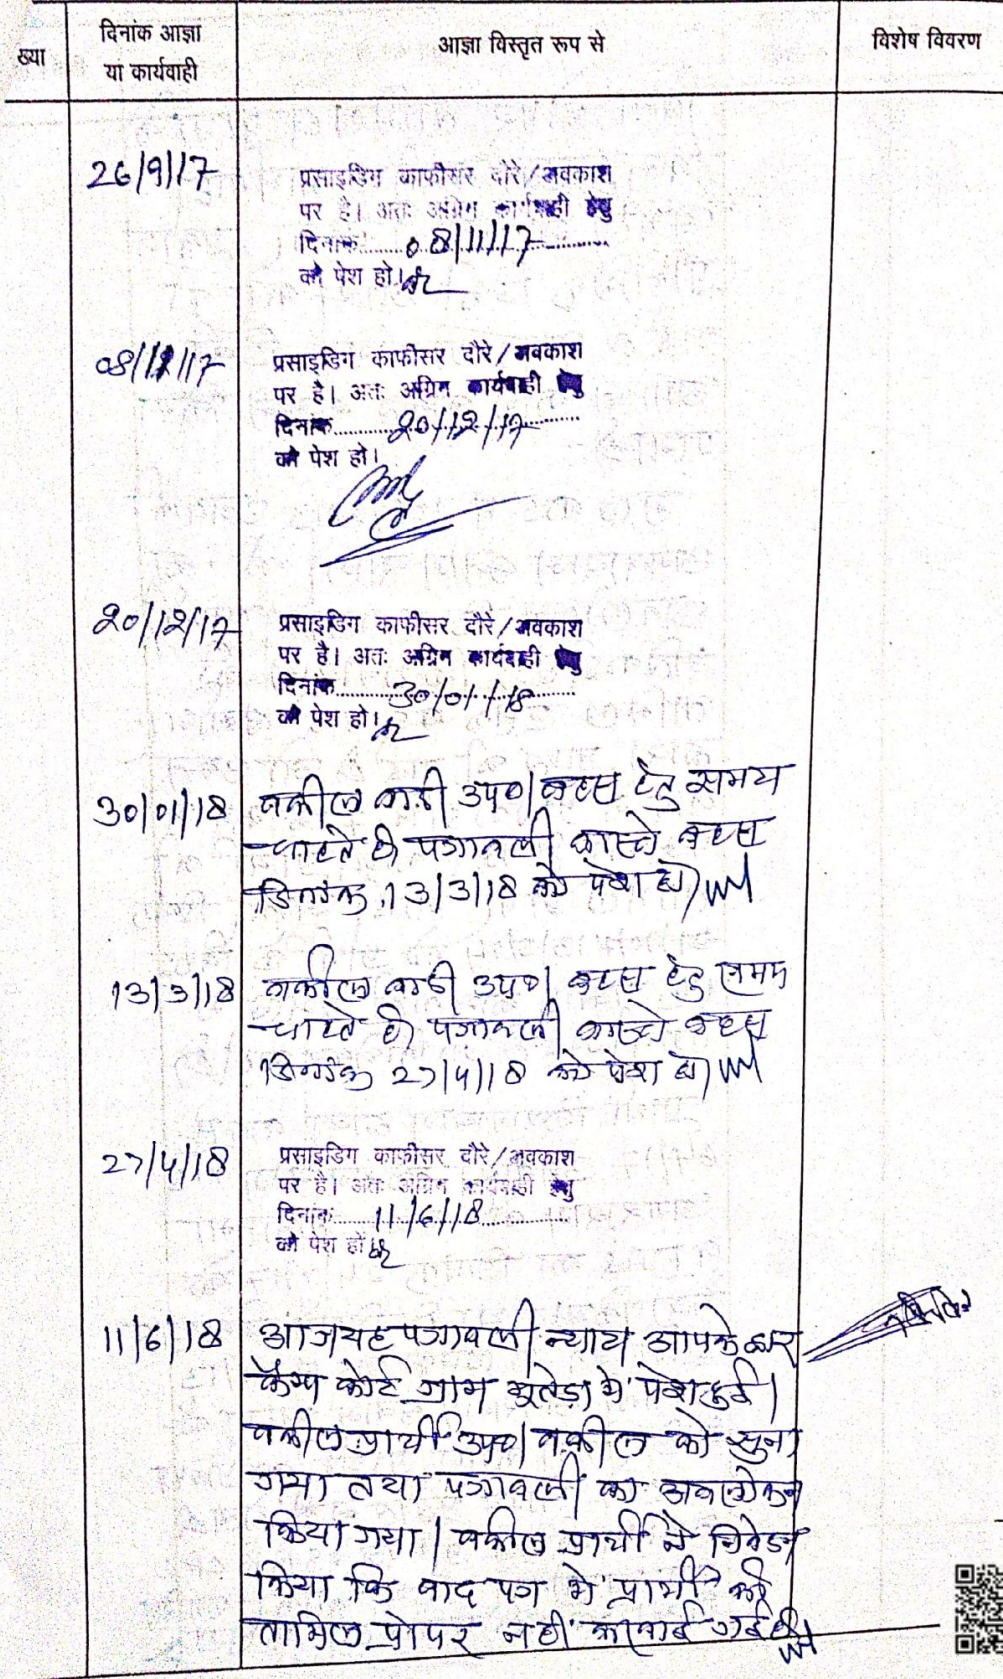 ख्या
दिनांक आज्ञा
या कार्यवाही
आज्ञा विस्तृत रूप से
विशेष विवरण
26/9/17
प्रसाइडिग काफीसर दौरे/अवकाश
पर है। अतः अग्रिम कार्यवाही हेतु
दिनांक 08/11/17
को पेश हो।
08/11/17
प्रसाइडिग काफीसर दौरे/अवकाश
पर है। अतः अग्रिम कार्यवाही हेतु
दिनांक 20/12/17
को पेश हो।
20/12/17
प्रसाइडिग काफीसर दौरे/अवकाश
पर है। अतः अग्रिम कार्यवाही हेतु
दिनांक 30/01/18
को पेश हो।
30/01/18
वकील वादी उप0। बहस हेतु समय
चाहते है। पत्रावली वास्ते बहस
दिनांक 13/3/18 को पेश हो।
13/3/18
वकील वादी उप0। बहस हेतु समय
चाहते है। पत्रावली वास्ते बहस
दिनांक 27/4/18 को पेश हो।
27/4/18
प्रसाइडिग काफीसर दौरे/अवकाश
पर है। अतः अग्रिम कार्यवाही हेतु
दिनांक 11/6/18
को पेश हो।
11/6/18
आज यह पत्रावली न्याय आपके द्वार
कैम्प कोर्ट ग्राम में पेश हुई।
वकील प्रार्थी उप0। वकील को सुना
गया तथा पत्रावली का अवलोकन
किया गया। वकील प्रार्थी ने निवेदन
किया कि वाद पत्र में प्रार्थी की
तामिल प्रोपर नहीं करवाई गई है।